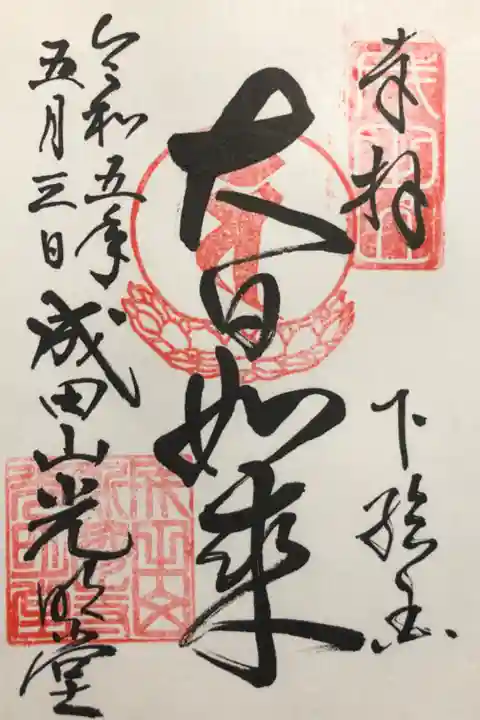 奉拝
下総国
大日如来
令和五年
五月三日
成田山光明堂